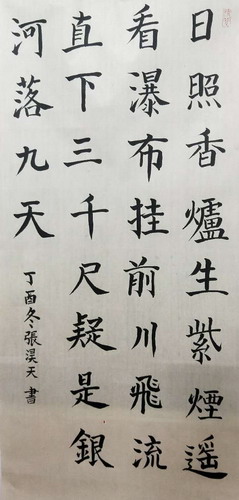 日照香爐生紫煙遥
看瀑布挂前川飛流
直下三千尺疑是銀
河落九天
丁酉冬張淏天書